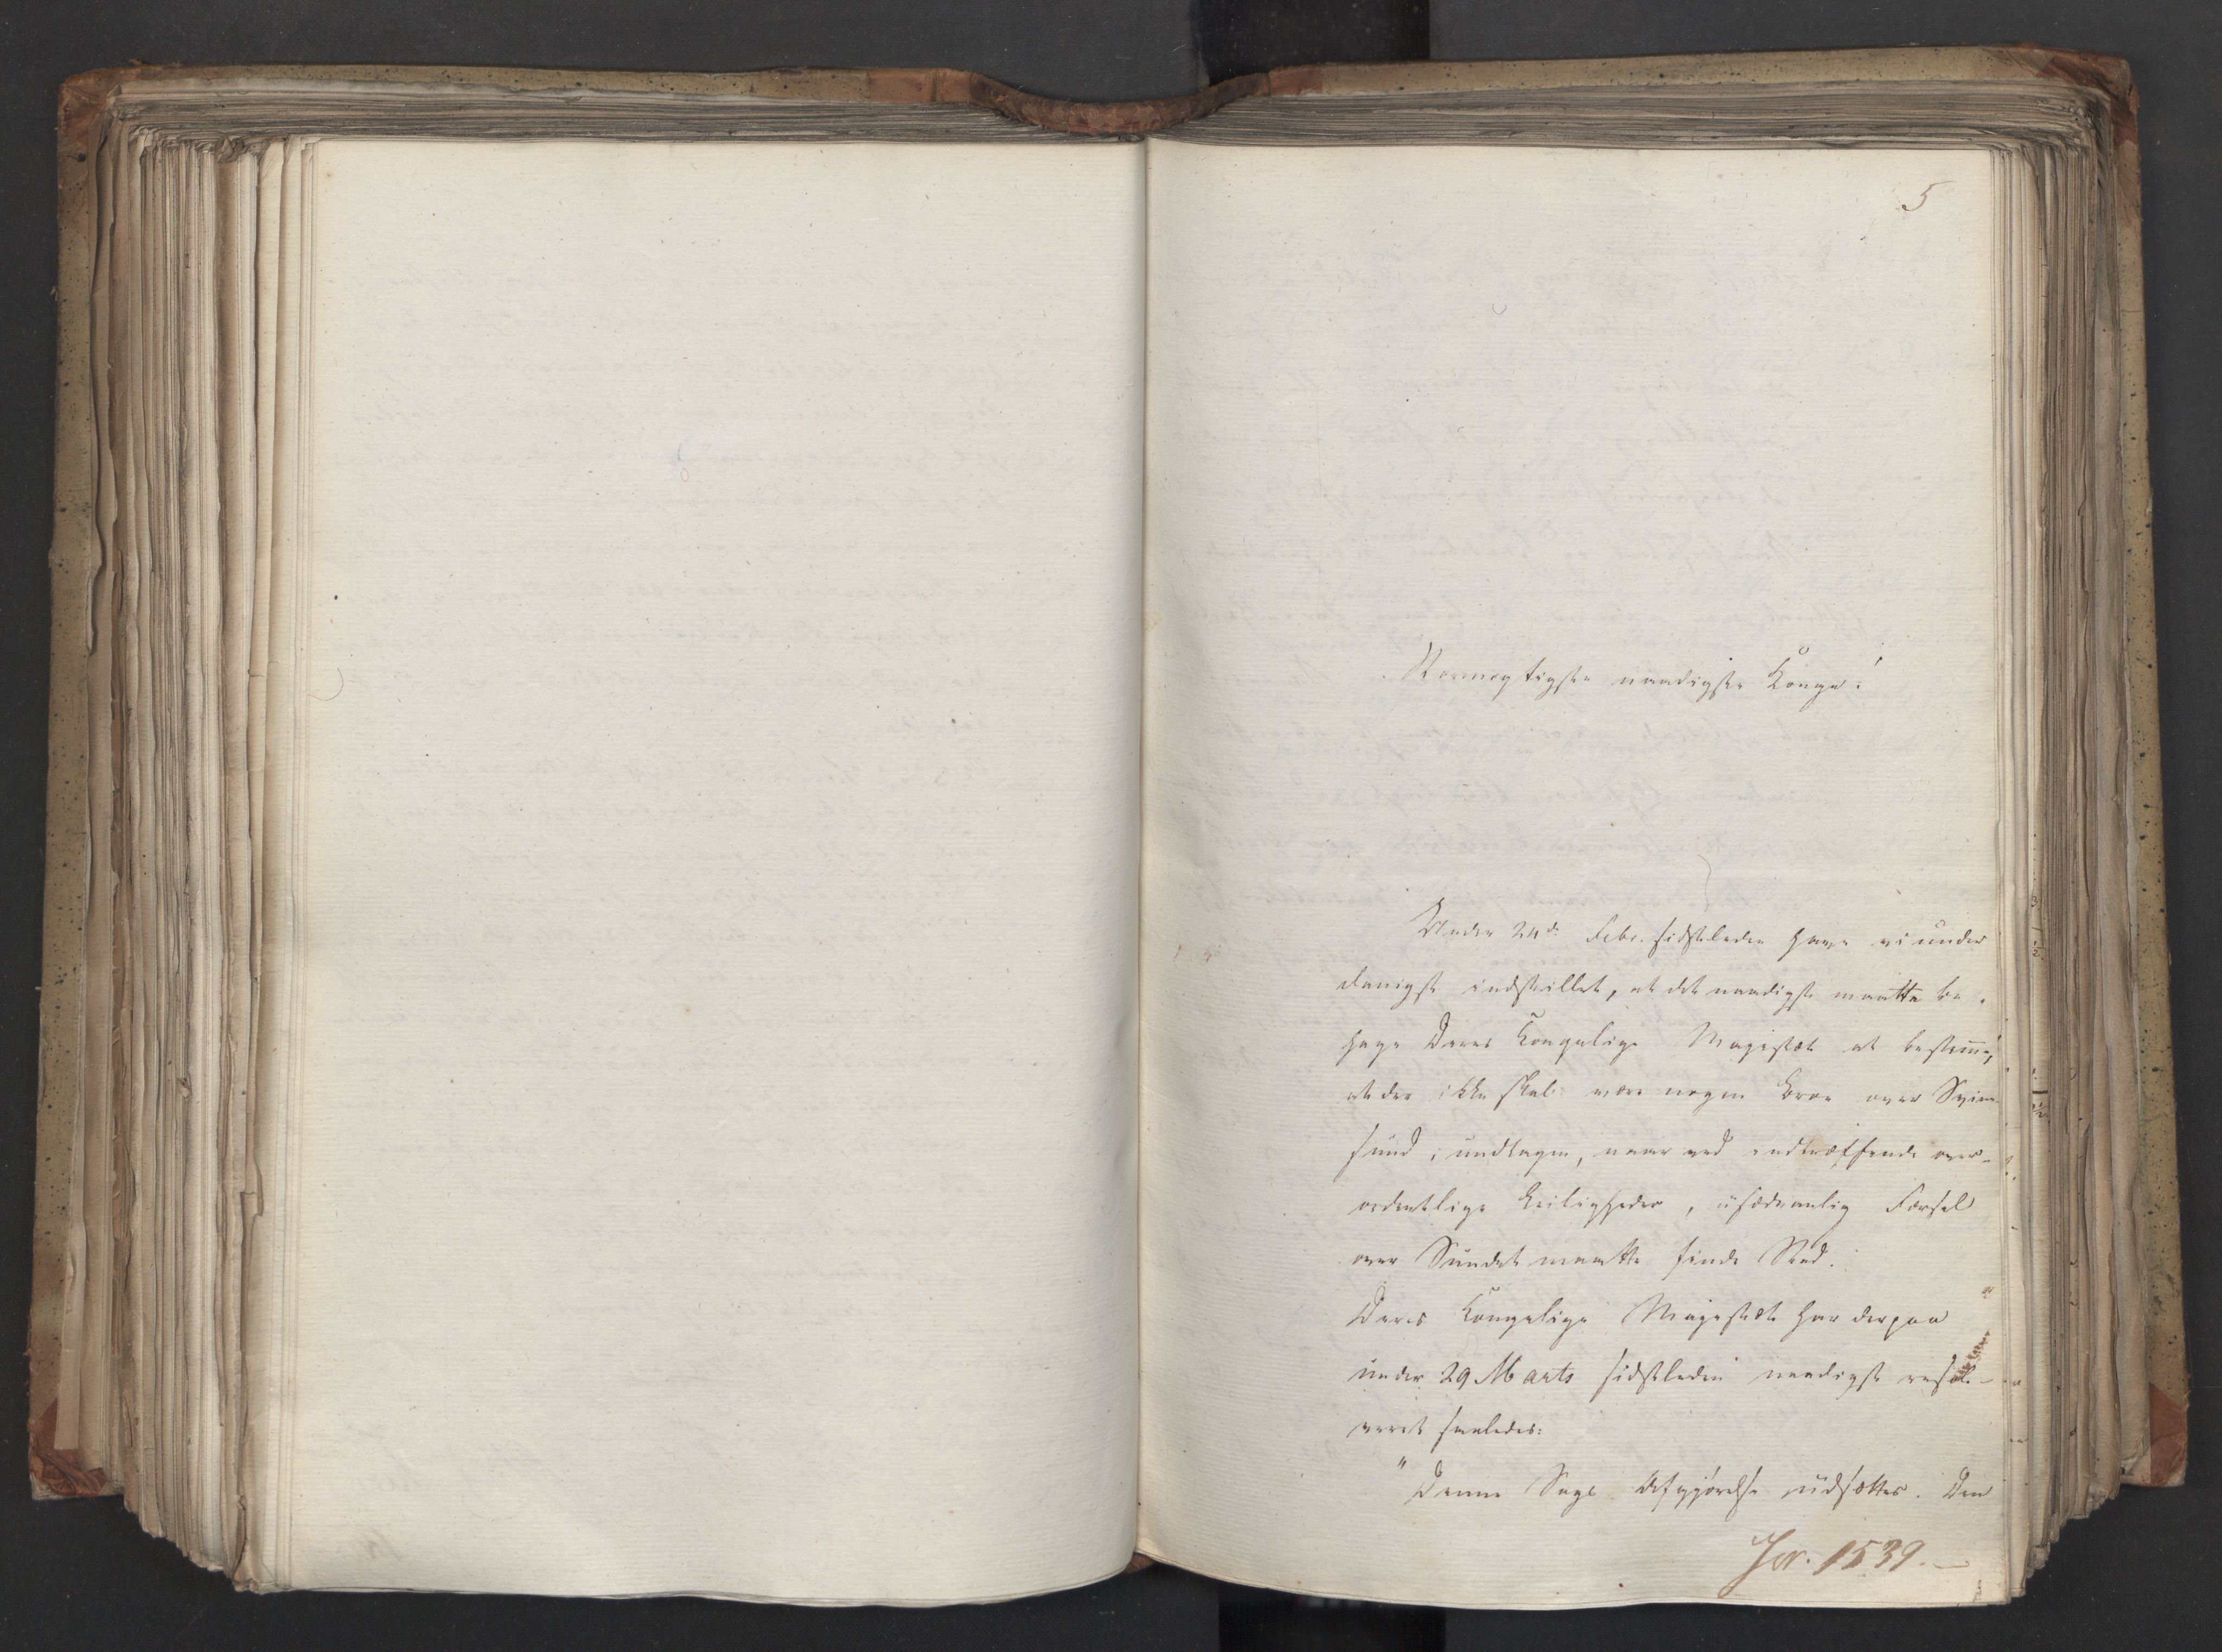 5
Stormægtigste naadigste Konge!
Under 24d: Febr. sidstleden have vi under
danigst indstillet, at det naadigst maatte be-
hage Deres Kongelige Majestæt at bestem̅e,
at der ikke skal være nogen Broe over Svine-
sund, undtagen, naar ved indtræffende over-
ordentlige Leiligheder, usædvanlig Færsel
over Sundet maatte finde Sted.
Deres Kongelige Majestæt har derpaa
under 29 Marts sidstleden naadigst resol-
veret saaledes:
"Denne Sags Afgjørelse udsættes. Den
Jor. 1539.-